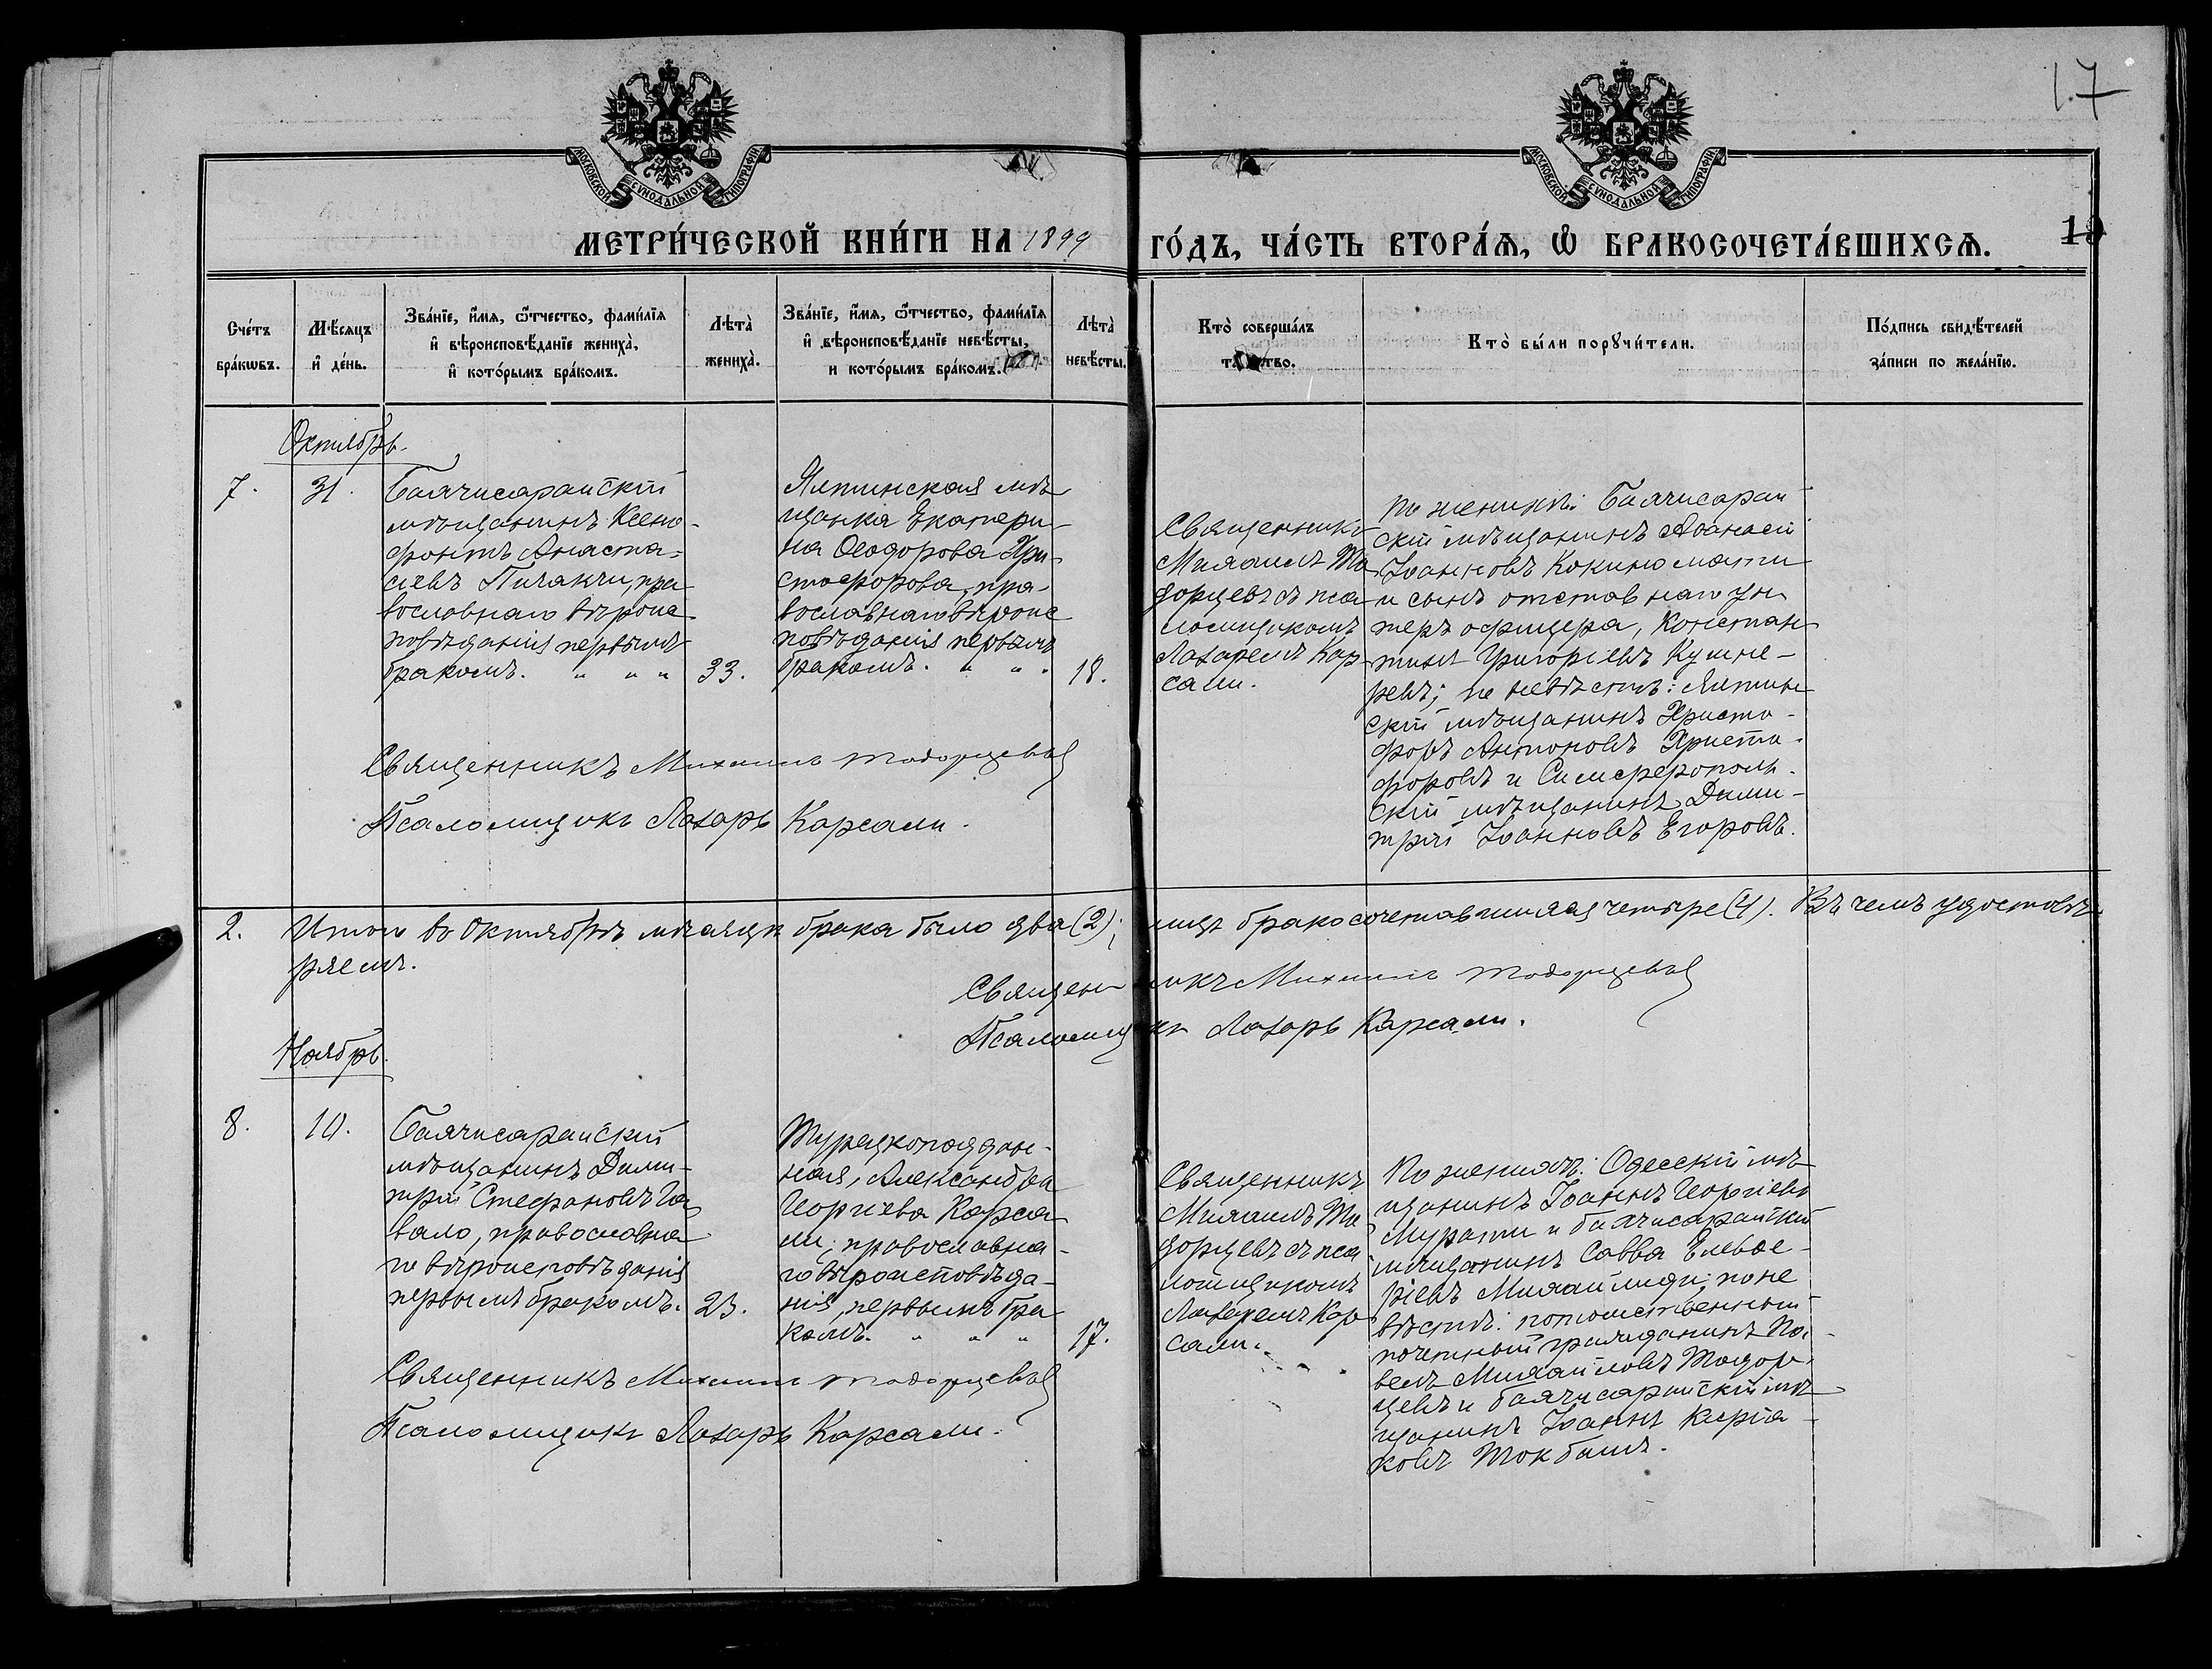 17
МОСКОВСКОЙ СѴНОДАЛЬНОЙ ТИПОГРАФІИ
МОСКОВСКОЙ СѴНОДАЛЬНОЙ ТИПОГРАФІИ
МЕТРИ́ЧЕСКОЙ КНИ́ГИ НА 1899 ГО́ДЪ, ЧА́СТЬ ВТОРА́Ѧ, Ѽ БРАКОСОЧЕТА́ВШИХСѦ.
Сче́тъ
бра́кѡвъ.
Мѣ́сяцъ
и҆ де́нь.
Зва́нїе, и҆́мя, ѻ҆́тчество, фами́лїя
и҆ вѣроисповѣ́данїе жениха̀,
и҆ кото́рымъ бра́комъ.
Лѣта̀
жениха̀.
Зва́нїе, и҆́мя, ѻ҆́тчество, фами́лїя
и҆ вѣроисповѣ́данїе невѣ́сты,
и кото́рымъ бра́комъ.
Лѣта̀
невѣ́сты.
Кто̀ соверша́лъ
Кто̀ бы́ли порꙋчи́тели.
По́дпись свидѣ́телей
за́писи по жела́нїю.
Октябрь.
7.
31.
Бахчисарайскій
мѣщанинъ Ксено-
фонтъ Анаста-
сіевъ Пичакчи, пра
вославнаго вѣроис
повѣданія первымъ
бракомъ. " " "
33.
Ялтинская мѣ
щанка Екатери-
на Ѳеодорова Хри-
стофорова, пра-
вославнаго вѣроис
повѣданія первымъ
бракомъ. " " .
18.
Священникъ
Михаилъ То
дорцевъ съ пса
ломщикомъ
Лазаремъ Кар
сами.
по женихѣ: Бахчисарай
скій мѣщанинъ Аѳанасій
Іоанновъ Кокиномати
и сынъ отставнаго ун
теръ офицера, Констан
тинъ Григоріевъ Кушне-
ревъ; по невѣстѣ: Ялтин
скій мѣщанинъ Христо-
форъ Антоновъ Христо-
форовъ и Симферополь-
скій мѣщанинъ Дими-
трій Іоанновъ Егоровъ.
Священникъ Михаилъ Тодорцевъ
Псаломщикъ Лазарь Карсами.
2. Итого во Октябрѣ мѣсяцѣ брака было два (2); лицъ бракосочетавшихся четыре (4). Въ чемъ удостовѣ-
ряемъ.
Священникъ Михаилъ Тодорцевъ
Псаломщикъ Лазарь Карсами.
Ноябрь.
8.
10.
Бахчисарайскій
мѣщанинъ Дими-
трій Стефановъ
вало, православна
го вѣроисповѣданія
первымъ бракомъ.
23.
Турецкоподдан-
ная, Александра
Георгіева Карса
ми, православна-
го вѣроисповѣда-
нія, первымъ бра
комъ. " " "
17.
Священникъ
Михаилъ То
дорцевъ съ пса
ломщикомъ
Лазаремъ Кар
сами.
По женихѣ: Одесскій мѣ
щанинъ Іоаннъ Георгіевъ
Мурати и бахчисарайскій
мѣщанинъ Савва Елевѳе-
ріевъ Михаилиди; по не
вѣстѣ: потомственный
почетный гражданинъ Па-
велъ Михайловъ Тодор-
цевъ и бахчисарайскій мѣ
щанинъ Іоаннъ Киріа-
ковъ Токбашъ.
Священникъ Михаилъ Тодорцевъ
Псаломщикъ Лазарь Карсами.